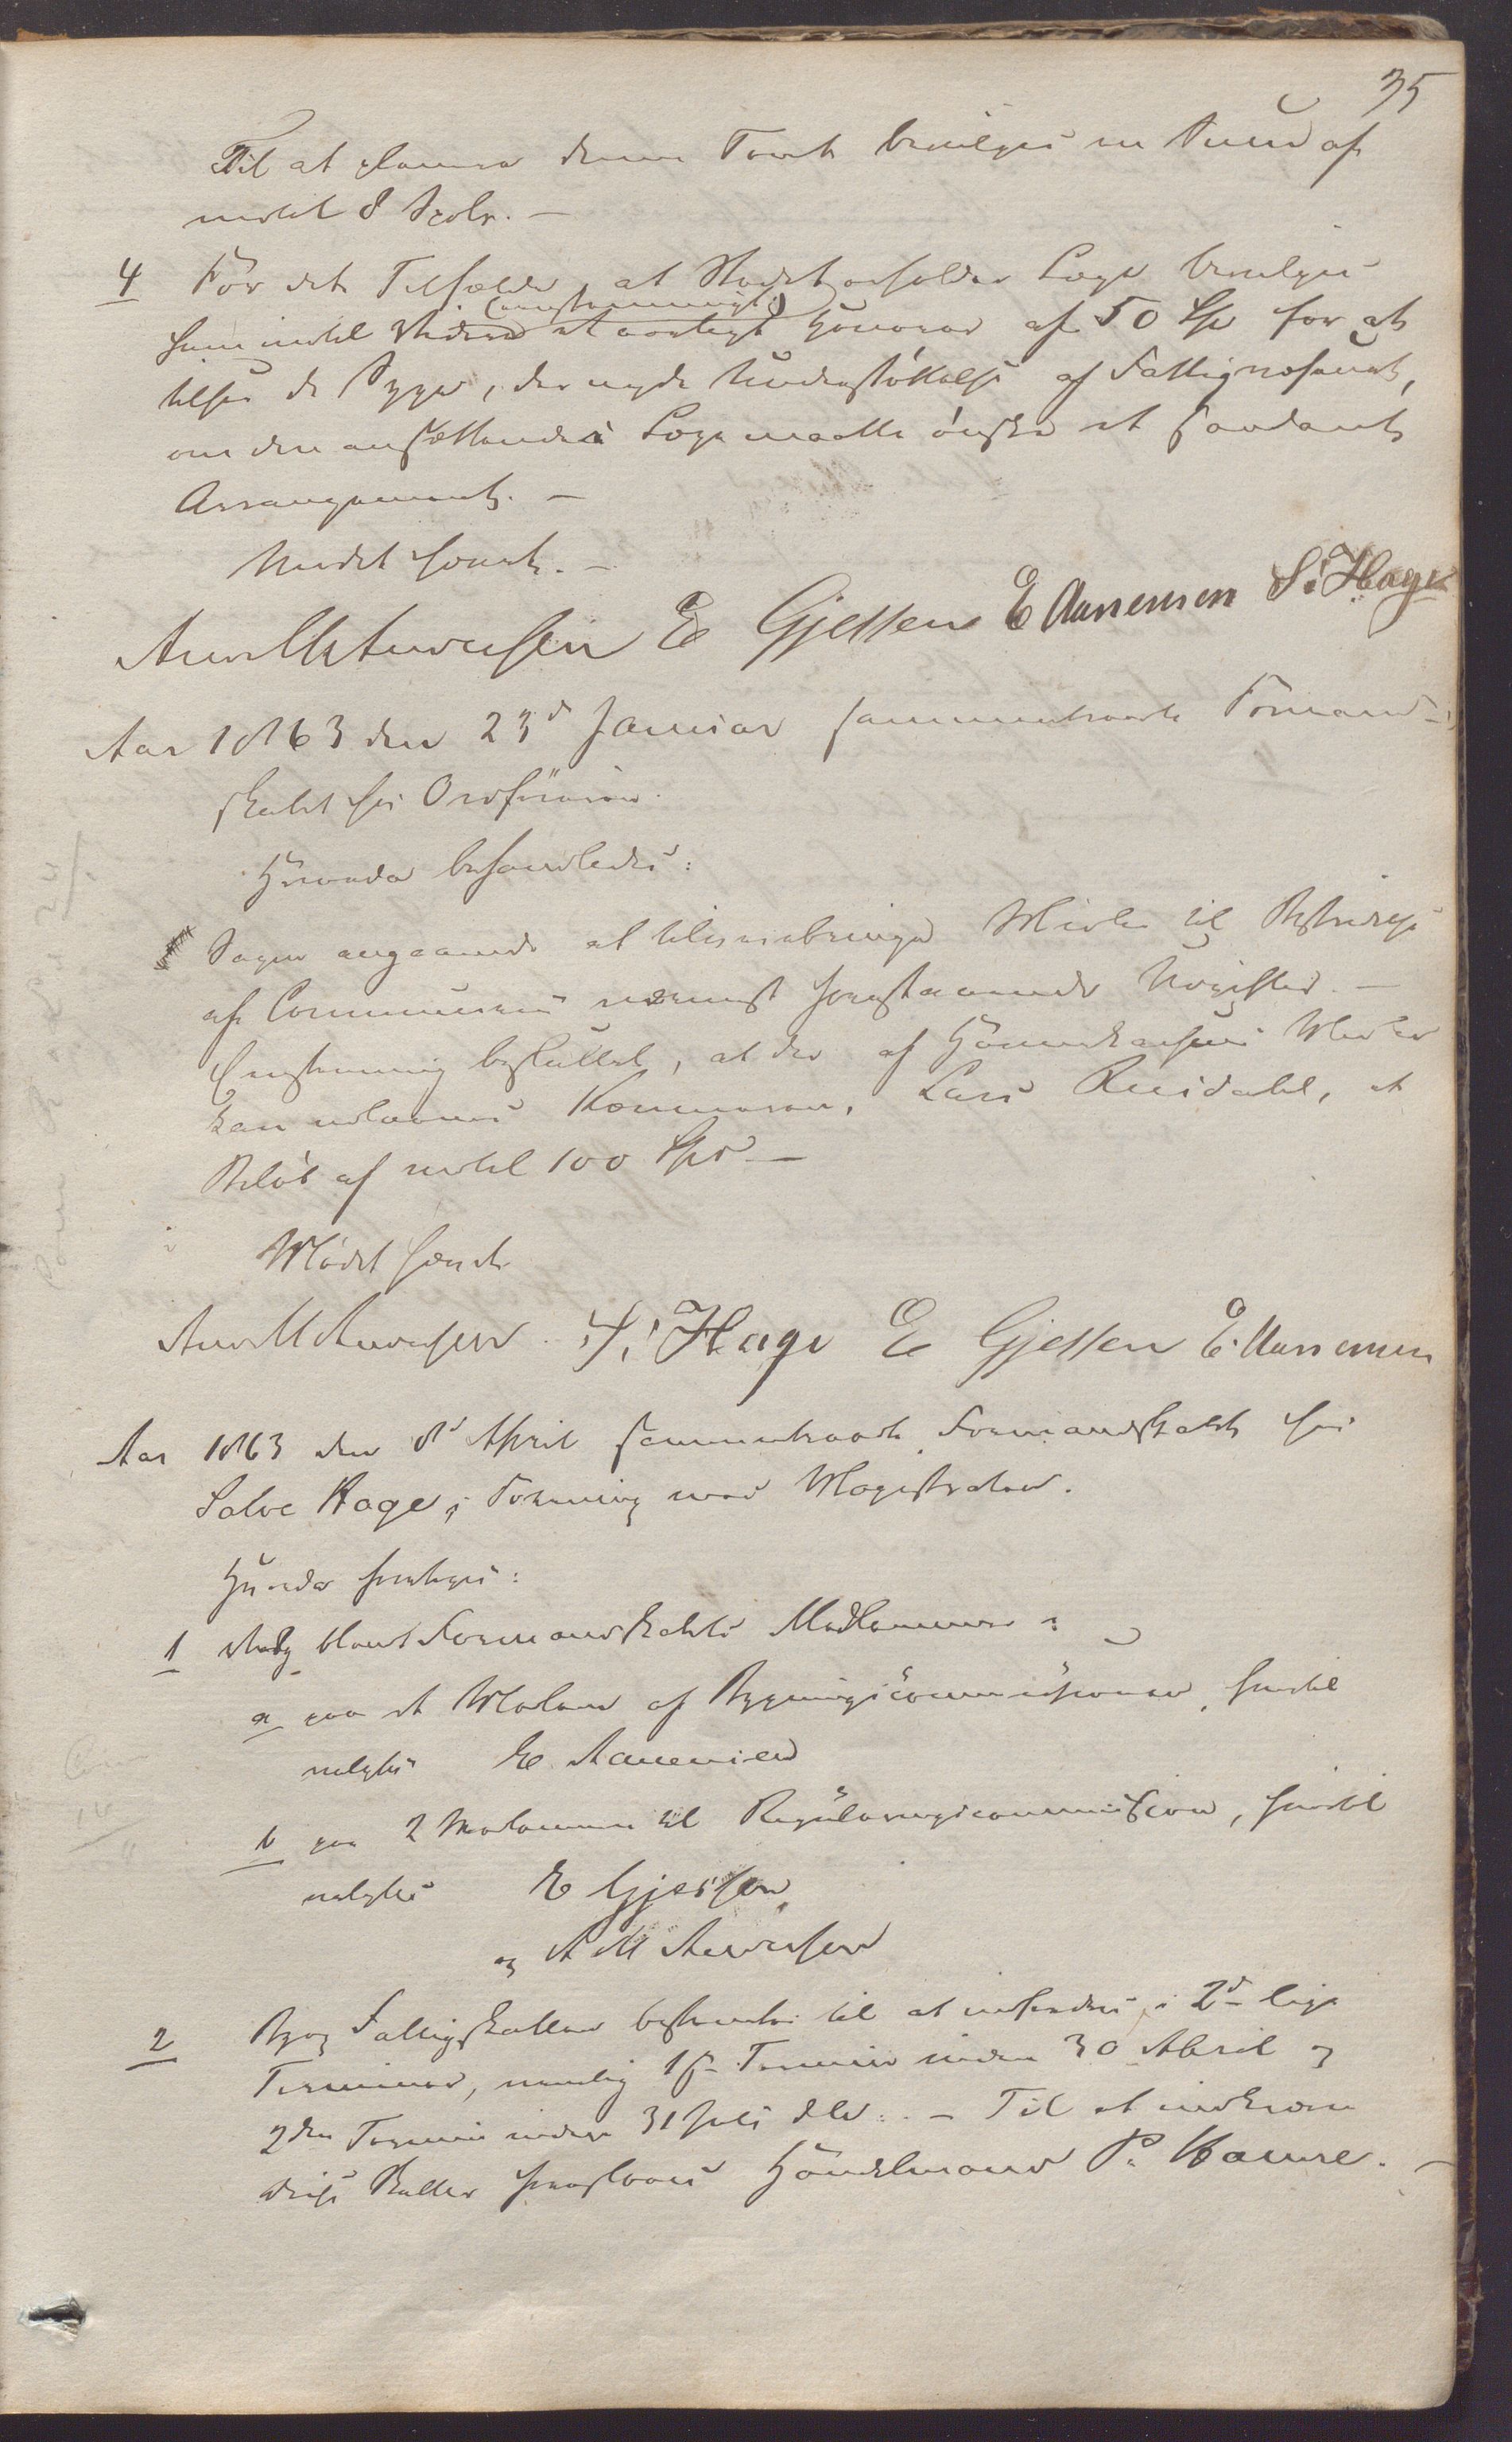 35
Til at planere denne Tomt bevilges en Sum af
indtil 8 Spdlr. —
4 For det Tilfælde, at Stedet erholder Læge bevilges
(eenstemmigt)
ham indtil Videre et aarligt Honorar af 50 Spd for at
tilsee de Syge, der nyde Understøttelse af Fattigvæsenet,
om den ansættendes Læge maatte ønske et saadant
Arrangement. —
Mødet hævet. —
And M Andersen E Gjessen E Aanensen S. Hage
Aar 1863 den 23d Januar sammentraadte Formand-
skabet hos Ordføreren.
Hvorda behandledes:
Sagen angaaende at tilveiebringe Midler til Bestridelse
af Communens nærmest forestaaende Udgifter. —
Eenstemmig besluttet, at der af Havnekassens Midler
kan udlaanes Kæmneren, Lars Rusdahl, et
Beløb af indtil 100 Spd —
Mødet hævet
And M Andersen S. Hage E Gjessen E. Aanensen
Aar 1863 den 8d April sammentraadte Formandskabet hos
Salve Hage, i Forening med Magistraten.
Hvorda foretoges:
1 Valg blandt Formandskabets Medlemmer:
a paa et Medlem af Bygningscommissionen, hvortil
valgtes E. Aanensen
b paa 2 Medlemmer til Reguleringscommission, hvortil
valgtes E Gjessen
og A M Andersen
2 By og Fattigskatten bestemtes til at indbetales i 2de lige
Terminer, nemlig 1ste Termin inden 30 April og
2den Termin inden 31 Juli d.A. — Til at indkræve
disse Skatter foresloges Handelsmand P. Hamre. —